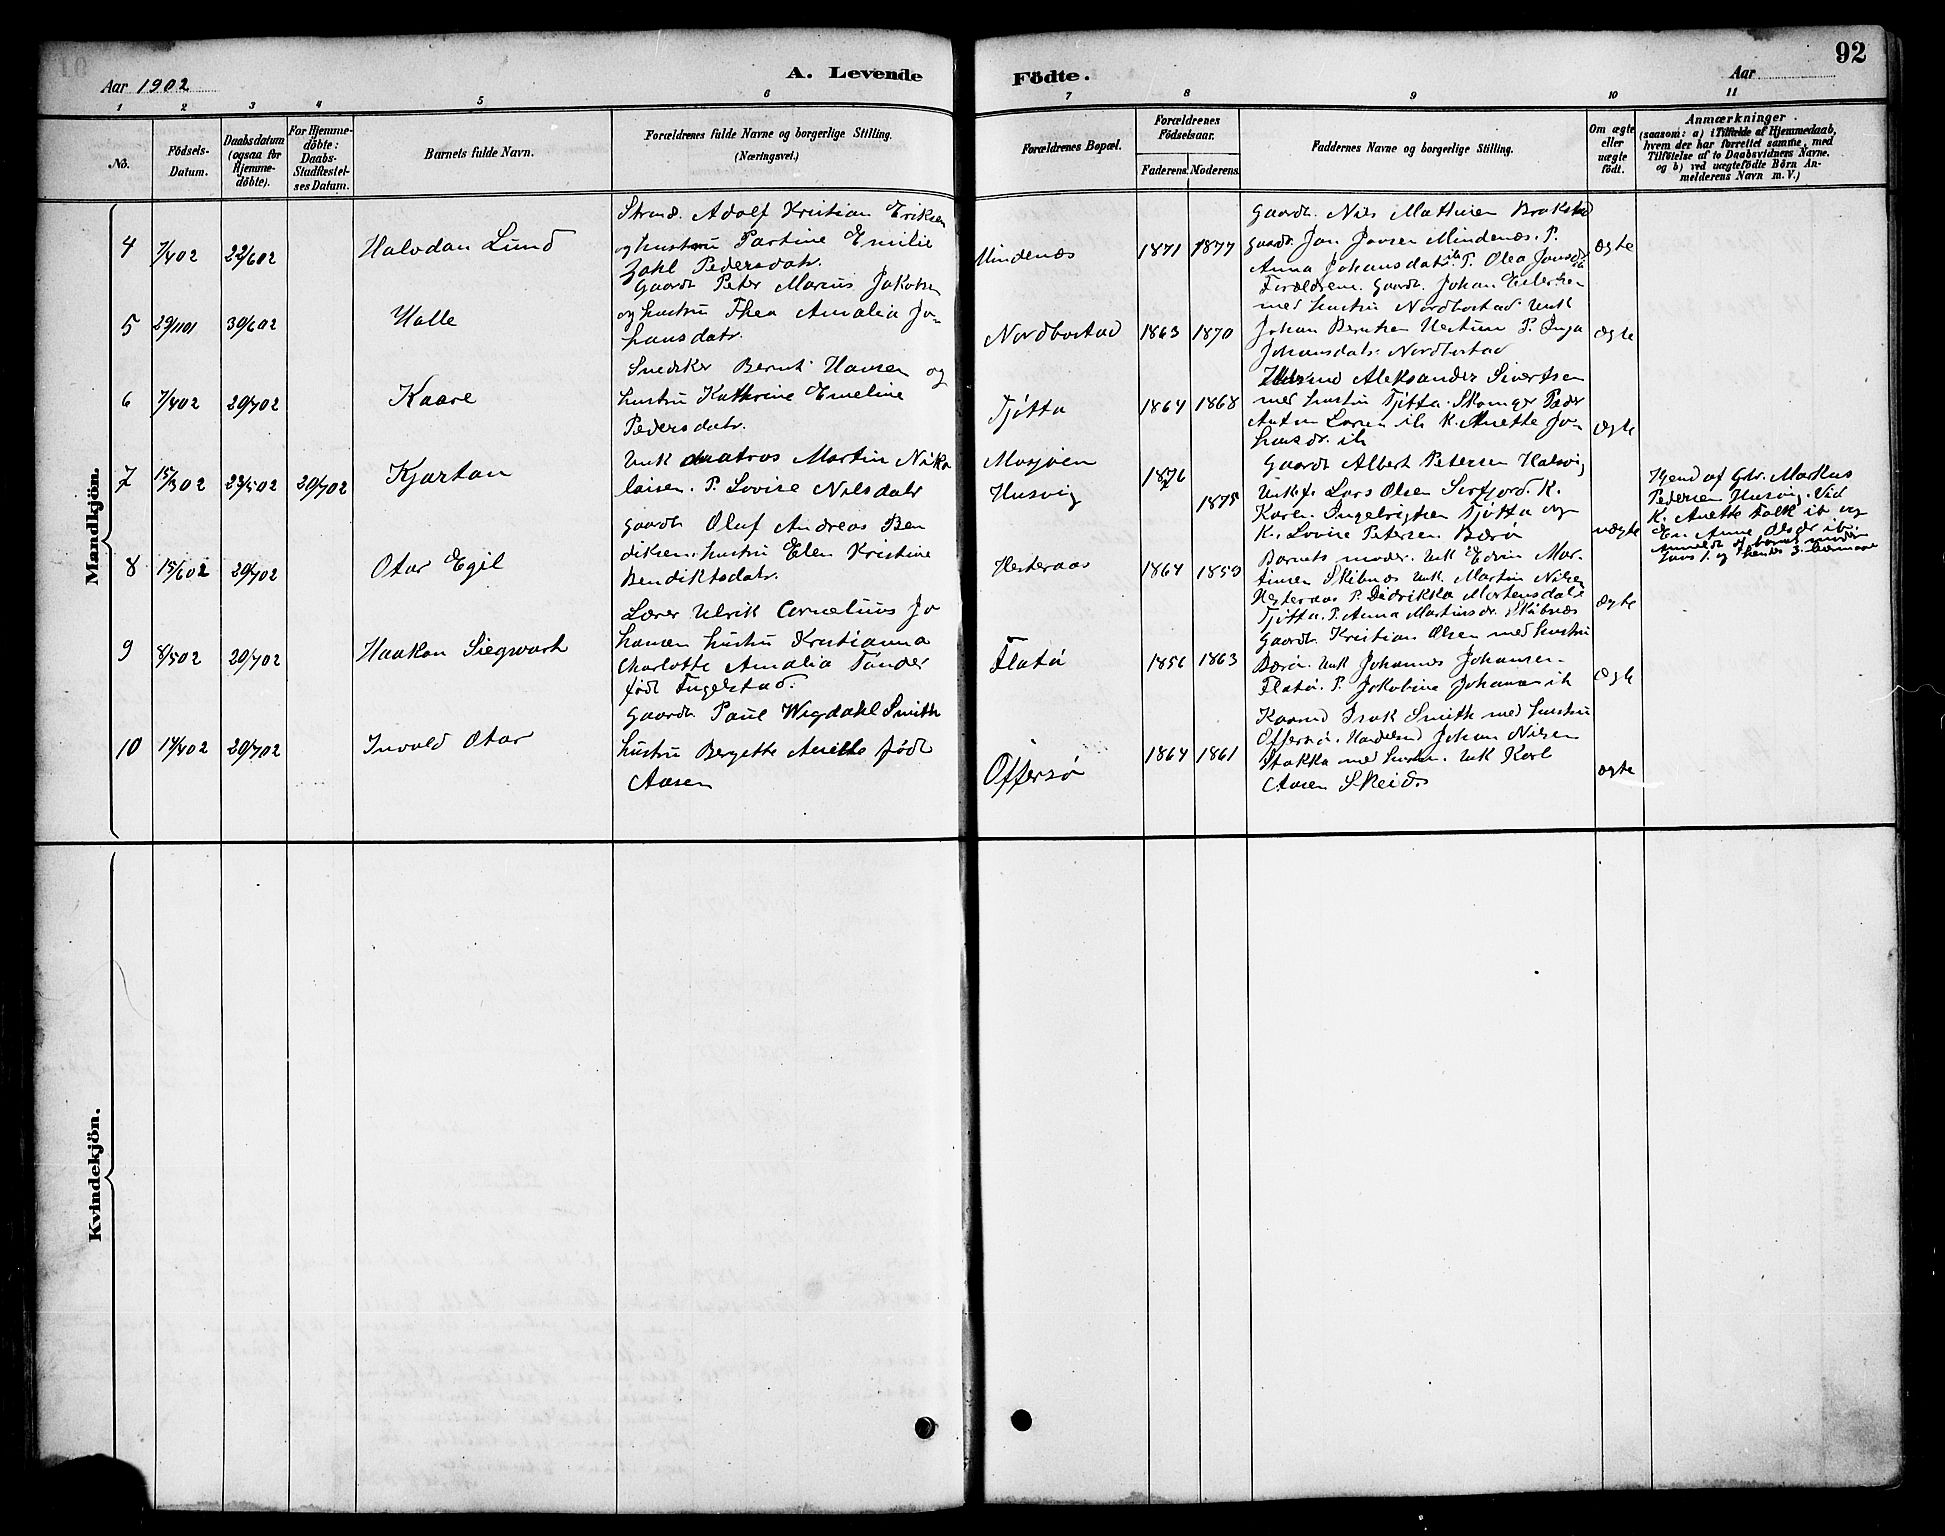 92
Aar 1902
A. Levende Födte.
Aar
1 2 3 4 5 6 7 8 9 10 11
No.
Födsels-Datum.
Daabsdatum (ogsaa for Hjemme-döbte).
For Hjemme-döbte: Daabs-Stadfæstel-ses Datum.
Barnets fulde Navn.
Forældrenes fulde Navne og borgerlige Stilling.
(Næringsvei.)
Forældrenes Bopæl.
Forældrenes Födselsaar.
Faderens. Moderens.
Faddernes Navne og borgerlige Stilling.
Om ægte eller uægte födt.
Anmærkninger.
(saasom: a) i Tilfælde af Hjemmedaab,
hvem der har forrettet samme, med
Tilföielse af to Daabsvidners Navne,
og b) ved uægtefödte Börn An-
melderens Navn m. V.)
Mandkjön.
4 7/4 02 22/6 02 Halvdan Lund
Strand. Adolf Kristian Eriksen
og hustru Partine Emilie
Zahl Pedersdatr.
Mindenæs 1871 1877
Gaardt. Nils Mathisen Brokstad
Gaardt. Jon Jonsen Mindenæs. P.
Anna Johansdatr ib P. Olea Jonsdr ib
ægte
5 29/11 01 30/6 02 Halle
Gaardt Peter Marius Jakobsen
og hustru Thea Amalia Jo-
hansdatr.
Nordbostad 1863 1870
Forældrene. Gaardt. Johan Eilertsen
med hustru Nordbostad Unk
Johan Berntsen P. Inga
Johansdatr. Nordbostad
ægte
6 7/4 02 20/7 02 Kaare
Snedker Bernt Hansen og
hustru Kathrine Emeline
Pedersdatr.
Tjötta 1864 1868
Aleksander Sivertsen
med hustru Tjötta. Skomager Peder
Anton Larsen ib K. Anette Jo-
hansdr. ib
ægte
7 15/3 02 23/5 02 20/7 02 Kjartan
Unk matros Martin Niko
laisen. P. Lovise Nilsdatr
Mosjöen
Husvig
1876
1875
Gaardt Albert Petersen Halsvig
Unkf. Lars Olsen K.
Karen Ingebrigtsen Tjötta og
K. Lovise Petersen Bærö
uægte
Hjemd af Gbr. Markus
Pedersen Husvig. Vid
K. Anette Falk ib og
En. Anne Olsdr ib.
Anmeldt af barnets moder
8 15/6 02 20/7 02 Otar Egil
Gaardt Oluf Andreas Ben
diksen. hustru Elen Kristine
Bendiktsdatr.
Hesteraas 1864 1859
Barnets moder. Unk Edvin Mar-
tinsen Skibnæs Unk. Martin Nilsen
Hesteraas P. Didrikka Mortensdatr
Tjötta. P. Anna Martinsdr. Skibnæs
ægte
9 8/5 02 20/7 02 Haakon Siegwart
Lærer Ulrik Cornelius Jo
hansen hustru Kristianna
Charlotte Amalia Tander
född Engelstad.
Flatö 1856 1863
Gaardt. Kristian Olsen med hustru
Bærö. Unk Johannes Johansen
Flatö. P. Jakobine Johansen ib
ægte
10 14/4 02 20/7 02 Invold Otar
Gaardt. Paul Wigdahl Smith
hustru Bergitte Anette född
Aasen
Offersö 1864 1861
Kaarmd Isak Smith med hustru
Offersö. Handelsmd Johan Nilsen
Stokka med hustru. Unk Karl
Aasen Skeids
ægte
Kvindekjön.